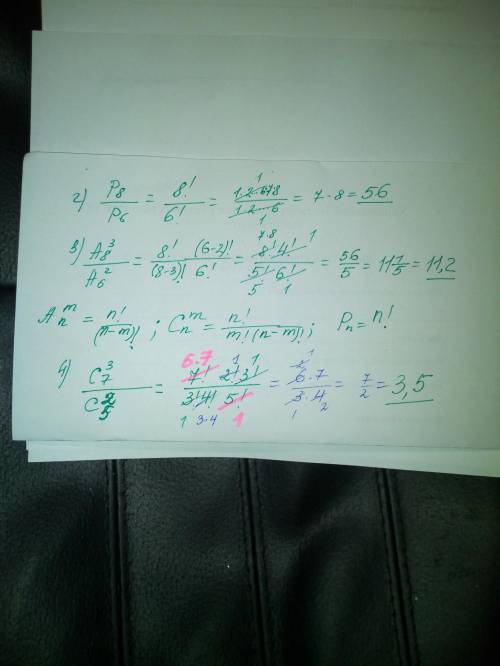 2) P₈/P₆ = 8!/6! = 1·2···6·7·8/1·2···6 = 7·8 = 56
3) A₈³/A₆² = 8!/(8-3)! · (6-2)!/6! = 8! 4!/5! 6! = 56/5 = 11 1/5 = 11,2
Aₙᵐ = n!/(n-m)! ; Cₙᵐ = n!/m!(n-m)! ; Pₙ = n!
4) C₇³/C₅² = 7! 2! 3!/3! 4! 5! = 6·7/3·4 = 7/2 = 3,5